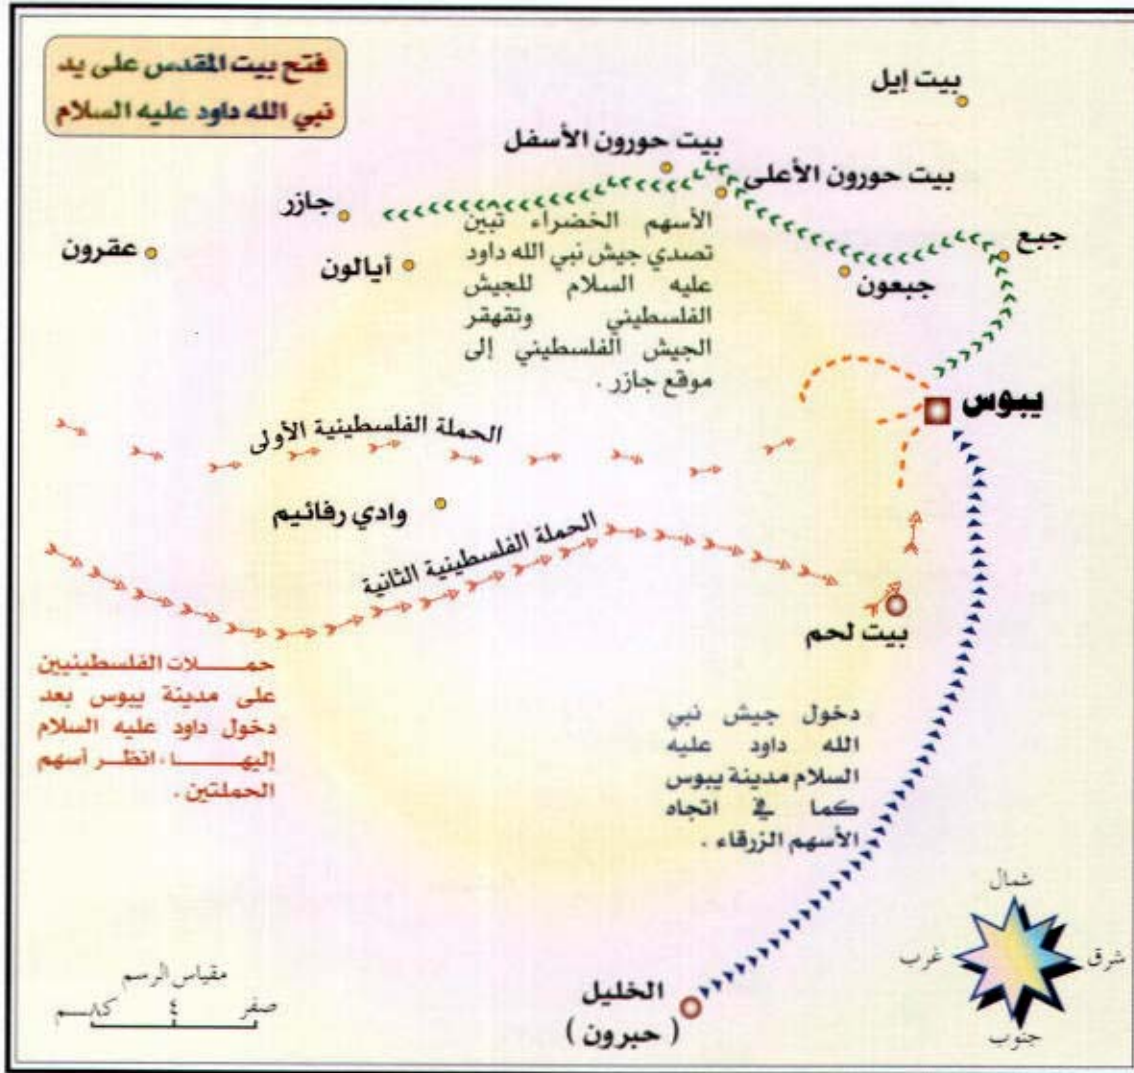 فتح بيت المقدس على يد
نبي الله داود عليه السلام
بيت إيل
بيت حورون الأسفل
بيت حورون الأعلى
جازر
جبع
عقرون
أيالون
جبعون
الأسهم الخضراء تبين
تصدي جيش نبي الله داود
عليه السلام للجيش
الفلسطيني وتقهقر
الجيش الفلسطيني إلى
موقع جازر .
يبوس
الحملة الفلسطينية الأولى
وادي رفائيم
الحملة الفلسطينية الثانية
بيت لحم
حمـــــلات الفلسطينيين
على مدينة يبوس بعد
دخول داود عليه السلام
إليهـــــا ، انظـر أسهم
الحملتين .
دخول جيش نبي
الله داود عليه
السلام مدينة يبوس
كما في اتجاه
الأسهم الزرقاء .
شمال
غرب
شرق
جنوب
الخليل
( حبرون )
مقياس الرسم
صفر ٤ ٨كـم